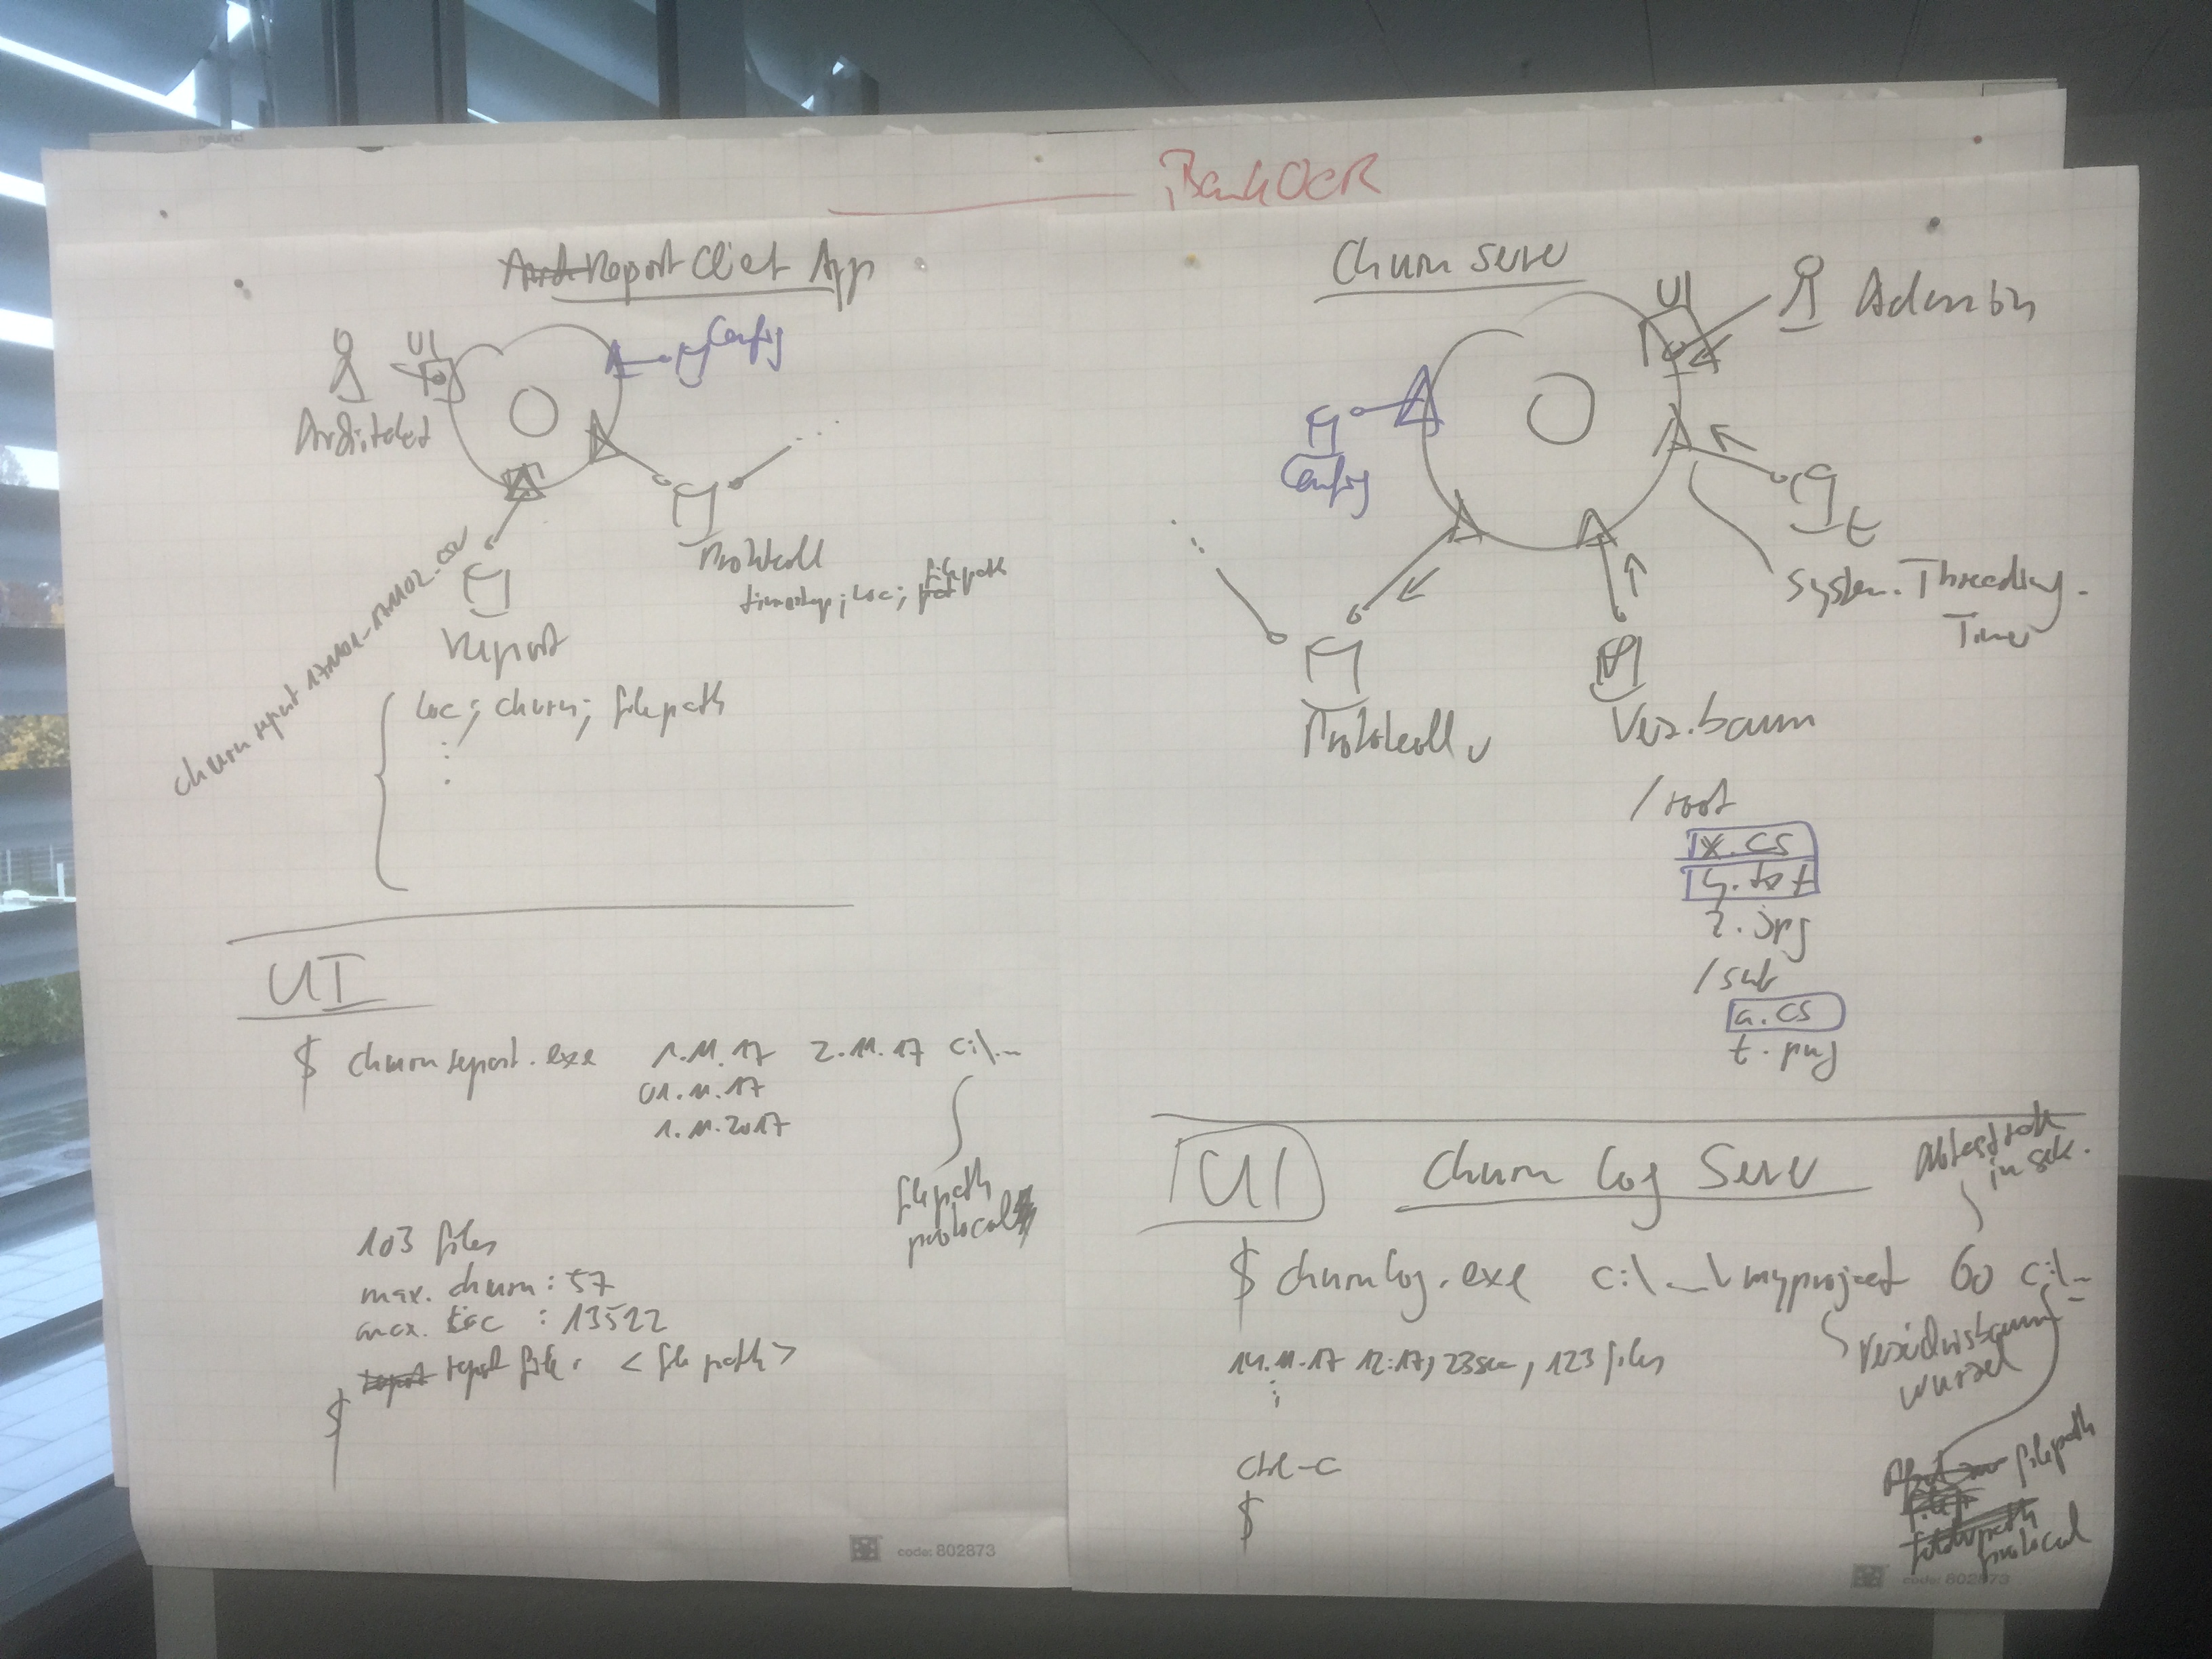 neuland
BankOCR
Report Client App
UI
Config
Architekt
...
Protokoll
timestamp; loc; filepath
Report
churnreport 171101-171102.csv
loc; churn; filepath
UI
$ churnreport.exe 1.11.17 2.11.17 c:\...
01.11.17
1.11.2017
filepath
protocol
103 files
max. churn: 57
max. loc : 13522
report file: <file path>
$
code: 802873
Churn Server
UI
Admin
Config
t
System.Threading.
Timer
Protokoll
Verz.baum
/root
x.cs
y.txt
z.jpg
/sub
a.cs
t.png
UI
Churn Log Server
in sek.
$ churnlog.exe c:\...\myproject 60 c:\...
Verzeichnisbaum
wurzel
14.11.17 12:17, 23sec, 123 files
ctrl-c
$
filepath
protocol
code: 802873